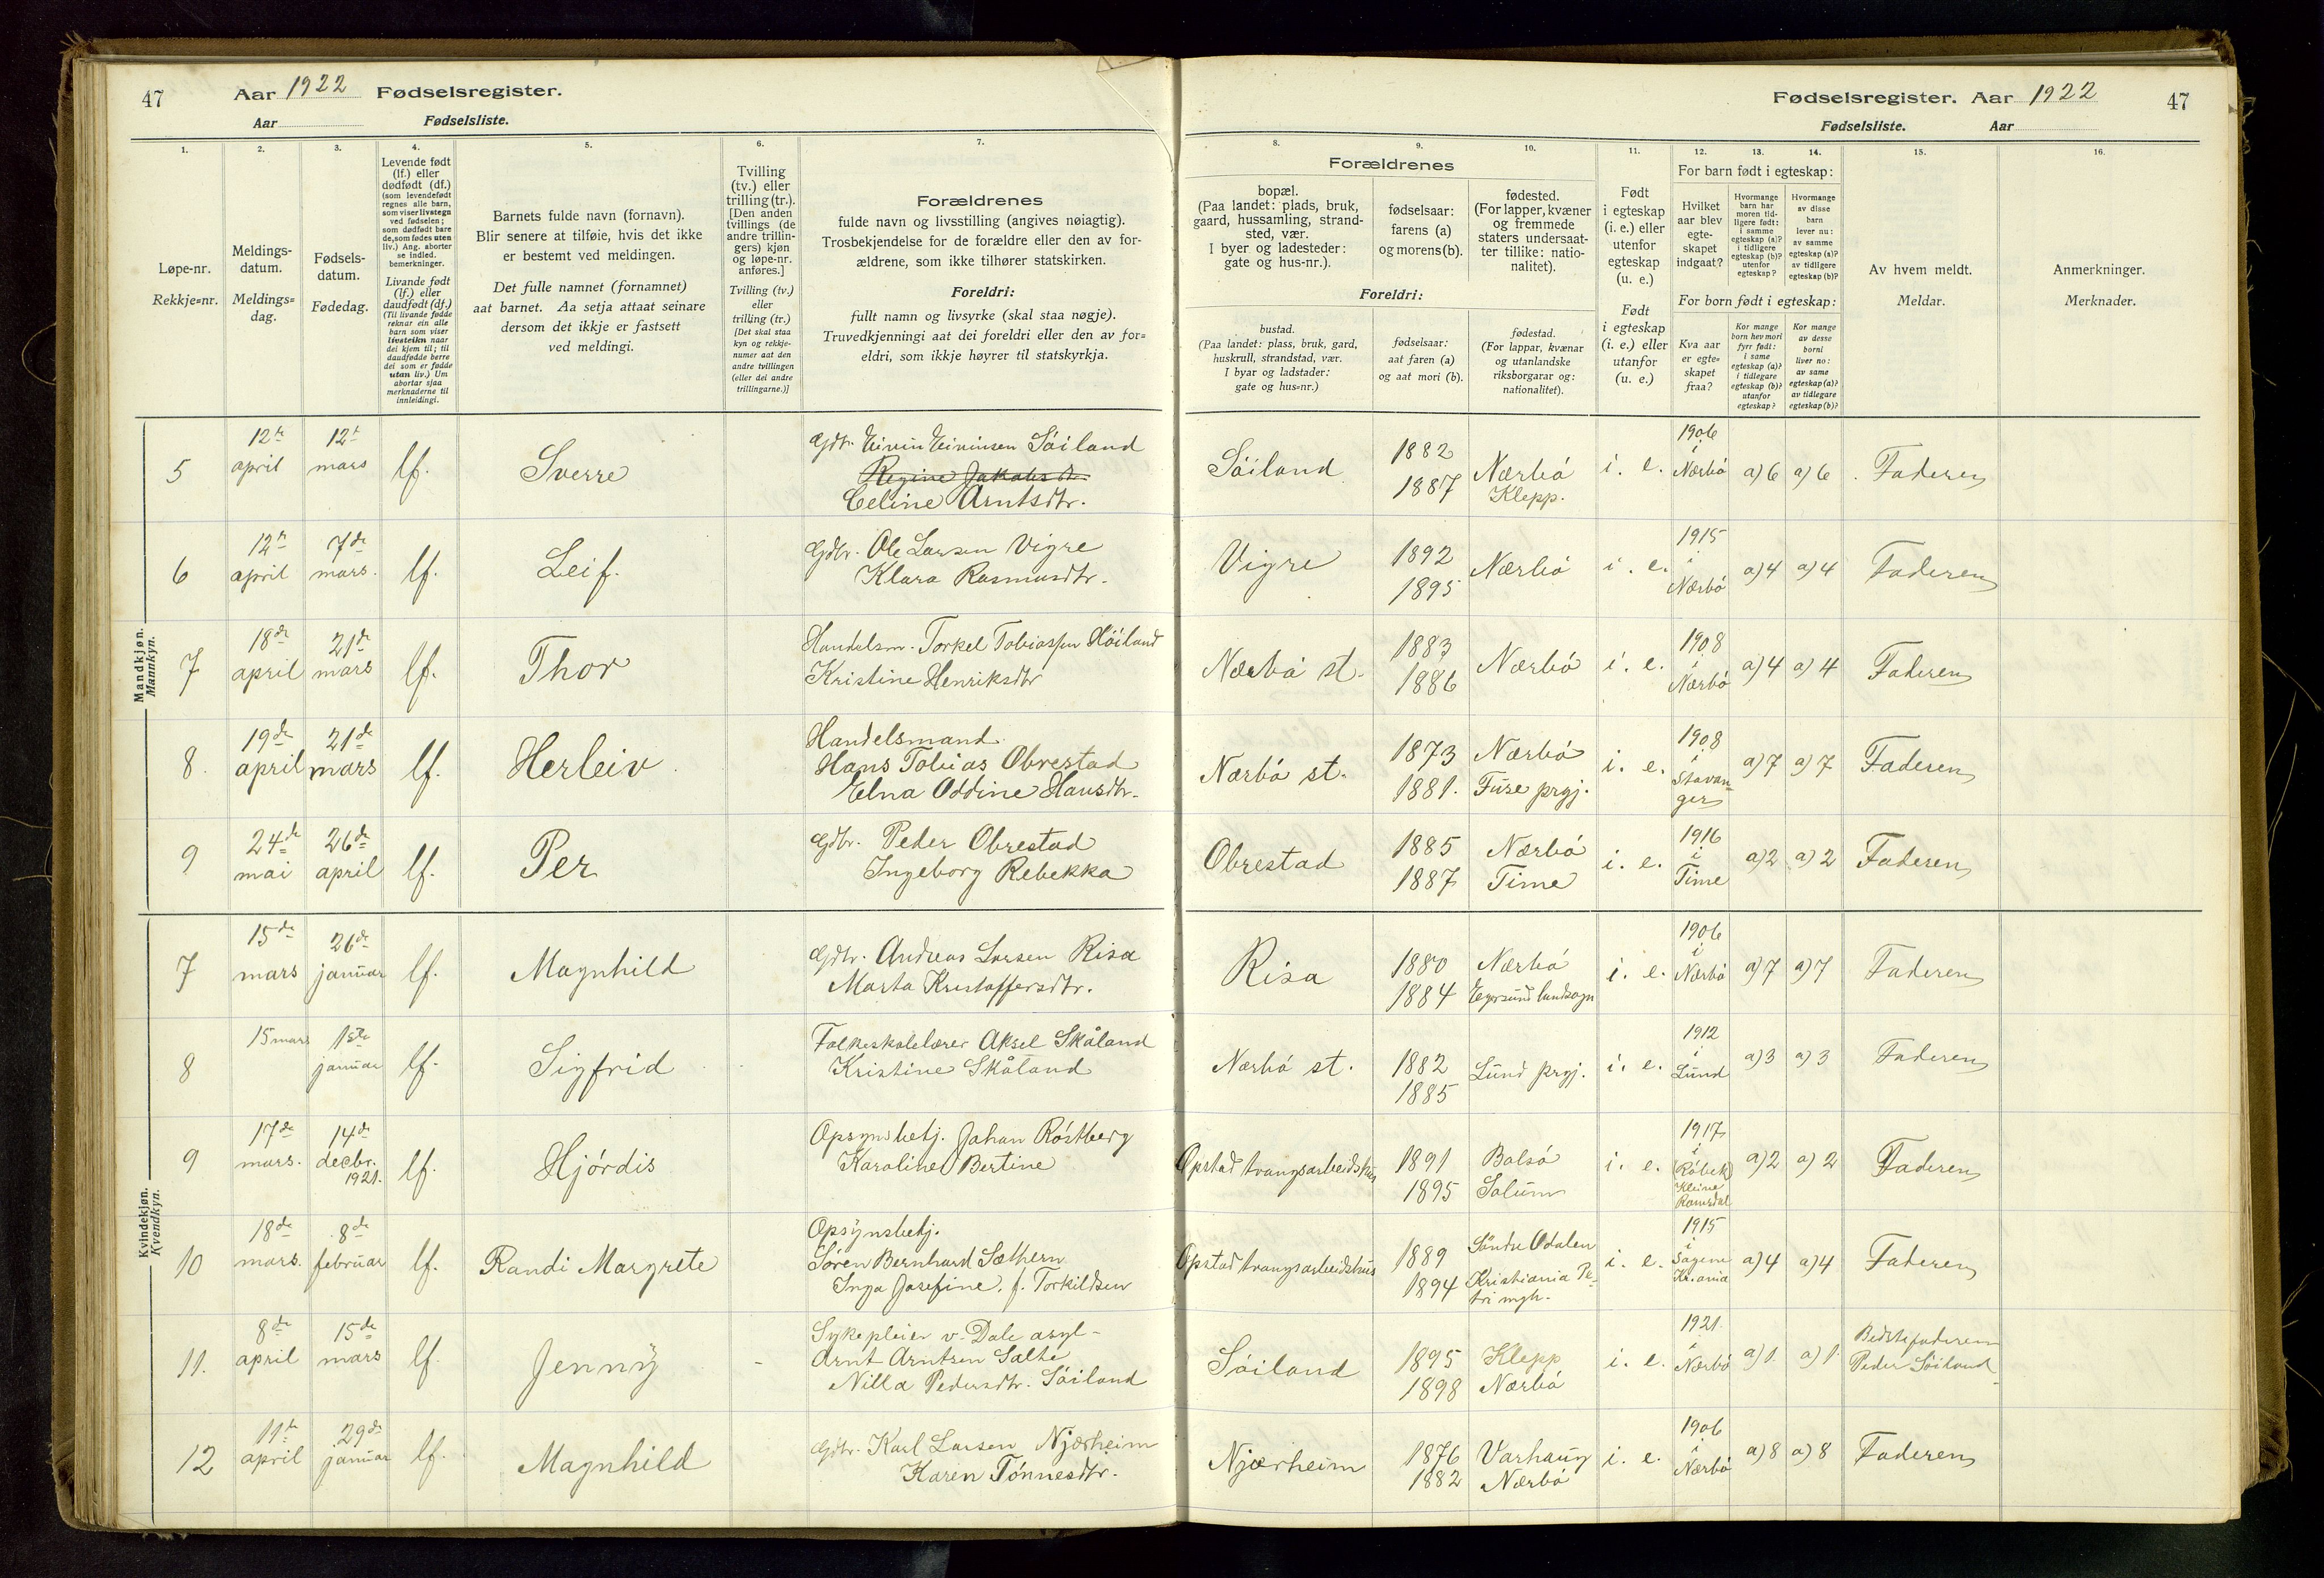 47 Aar 1922 Fødselsregister.
Aar Fødselsliste.
1.
2.
3.
4.
5.
6.
7.
Løpe-nr.
Rekkje-nr.
Meldings-
datum.
Meldings-
dag.
Fødsels-
datum.
Fødedag.
Levende født
(lf.) eller
dødfødt (df.)
(som levendefødt
regnes alle barn,
som viser livstegn
ved fødselen;
som dødfødt bare
de, som fødes uten
liv.) Ang. aborter
se indled.
bemerkninger.
Livande født
(lf.) eller
daudfødt (df.)
(Til livande fødde
reknar ein alle
barn som viser
livsteikn naar
dei kjem til; til
daudfødde berre
dei som er fødde
utan liv.) Um
abortar sjaa
merknaderne til
innleidingi.
Barnets fulde navn (fornavn).
Blir senere at tilføie, hvis det ikke
er bestemt ved meldingen.
Det fulle namnet (fornamnet)
aat barnet. Aa setja attaat seinare
dersom det ikkje er fastsett
ved meldingi.
Tvilling
(tv.) eller
trilling (tr.).
[Den anden
tvillings (de
andre trillin-
gers) kjøn
og løpe-nr.
anføres.]
Tvilling (tv.)
eller
trilling (tr.)
[Det skal staa
kyn og rekkje-
numer aat den
andre tvillingen
(eller dei andre
trillingarne.)]
Forældrenes
fulde navn og livsstilling (angives nøiagtig).
Trosbekjendelse for de forældre eller den av for-
ældrene, som ikke tilhører statskirken.
Foreldri:
fullt namn og livsyrke (skal staa nøgje).
Truvedkjenningi aat dei foreldri eller den av for-
eldri, som ikkje høyrer til statskyrkja.
Fødselsregister. Aar 1922 47
Fødselsliste. Aar
8.
9.
10.
11.
12.
13.
14.
15.
16.
Forældrenes
bopæl.
(Paa landet: plads, bruk,
gaard, hussamling, strand-
sted, vær.
I byer og ladesteder:
gate og hus-nr.).
fødselsaar:
farens (a)
og morens (b).
fødested.
(For lapper, kvæner
og fremmede
staters undersaat-
ter tillike: natio-
nalitet).
Foreldri:
bustad.
(Paa landet: plass, bruk, gard,
huskrull, strandstad, vær.
I byar og ladstader:
gate og hus-nr.)
fødselsaar:
aat faren (a)
og aat mori (b).
fødestad.
(For lappar, kvænar
og utanlandske
riksborgarar og:
nationalitet).
Født
i egteskap
(i. e.) eller
utenfor
egteskap
(u. e.)
Født
i egteskap
(i. e.) eller
utanfor
(u. e.)
For barn født i egteskap:
Hvilket
aar blev
egte-
skapet
indgaat?
Hvormange
barn har
moren tid-
ligere født:
i samme
egteskap (a)?
i tidligere
egteskap (b)?
utenfor
egteskap?
Hvormange
av disse
barn
lever nu:
av samme
egteskap (a)?
av tidligere
egteskap (b)?
For born født i egteskap:
Kva aar
er egte-
skapet
fraa?
Kor mange
born hev mori
fyrr født:
i same
egteskap (a)?
i tidlegare
egteskap (b)?
utanfor
egteskap?
Kor mange
av desse
borni
liver no:
av same
egteskap (a)?
av tidlegare
egteskap (b)?
Av hvem meldt.
Meldar.
Anmerkninger.
Merknader.
Mandkjøn.
Mannkyn.
5 12te april 12te mars lf. Sverre
Gdbr. Eivin Eivinsen Söiland
Regine Jakobsdtr.
Celine Arntsdtr.
Söiland 1882 1887 Nærbö Klepp. i. e. 1906 i Nærbö a) 6 a) 6 Faderen
6 12te april 7de mars. lf. Leif.
Gdbr. Ole Larsen Vigre
Klara Rasmusdtr.
Vigre 1892 1895 Nærbö i. e. 1915 i Nærbö a) 4 a) 4 Faderen
7 18de april 21de mars lf. Thor
Handelsm. Torkel Tobiassen Höiland
Kristine Henriksdtr
Nærbö st. 1883 1886 Nærbö i. e. 1908 i Nærbö a) 4 a) 4 Faderen
8. 19de april 21de mars lf. Herleiv
Handelsmand
Hans Tobias Obrestad
Elna Oddine Hansdtr.
Nærbö st. 1873 1881. Nærbö Fuse prgj. i. e. 1908 i Stavanger a) 7 a) 7 Faderen
9 24de mai 26de april lf. Per
Gdbr. Peder Obrestad
Ingeborg Rebekka
Obrestad 1885 1887 Nærbö Time i. e. 1916 i Time a) 2 a) 2 Faderen
Kvindekjøn.
Kvendkyn.
7 15de mars 26de januar lf. Magnhild
Gdbr. Andreas Larsen Risa
Marta Kristoffersdtr.
Risa 1880 1884 Nærbö Egersund landsogn i. e. 1906 i Nærbö a) 7 a) 7 Faderen
8 15 mars 1ste januar lf. Sigfrid
Folkeskolelærer Aksel Skåland
Kristine Skåland
Nærbö st. 1882 1885 Lund prgj. i. e. 1912 i Lund a) 3 a) 3 Faderen
9 17de mars. 14de decbr. 1921. lf. Hjördis
Opsynsbetj. Johan Röstberg
Karoline Bertine
Opstad tvangsarbeidshus 1891 1895 Bolsö Solum i. e. 1917 i Röbek Kleive Romsdal a) 2 a) 2 Faderen
10 18de mars. 8de februar lf. Randi Margrete
Opsynsbetj.
Sören Bernhard Sæthern
Inga Josefine, f. Torkildsen
Opstad tvangsarbeidshus 1889 1894 Söndre Odalen Kristiania Pe-
tri mgh. i. e. 1915 i Sagene Kr.ania a) 4 a) 4 Faderen
11. 8de april 15de mars lf Jenny -
Sykepleier v. Dale asyl-
Arnt Arntsen Salte
Nilla Pedersdtr. Söiland
Söiland 1895 1898 Klepp Nærbö i. e. 1921. i Nærbö a) 1. a) 1. Bedstefaderen
Peder Söiland
12 11te april 29de januar lf. Magnhild
Gdbr. Karl Larsen Njærheim
Karen Tönnesdtr.
Njærheim 1876 1882 Varhaug Nærbö i. e. 1906 i Nærbö a) 8 a) 8 Faderen